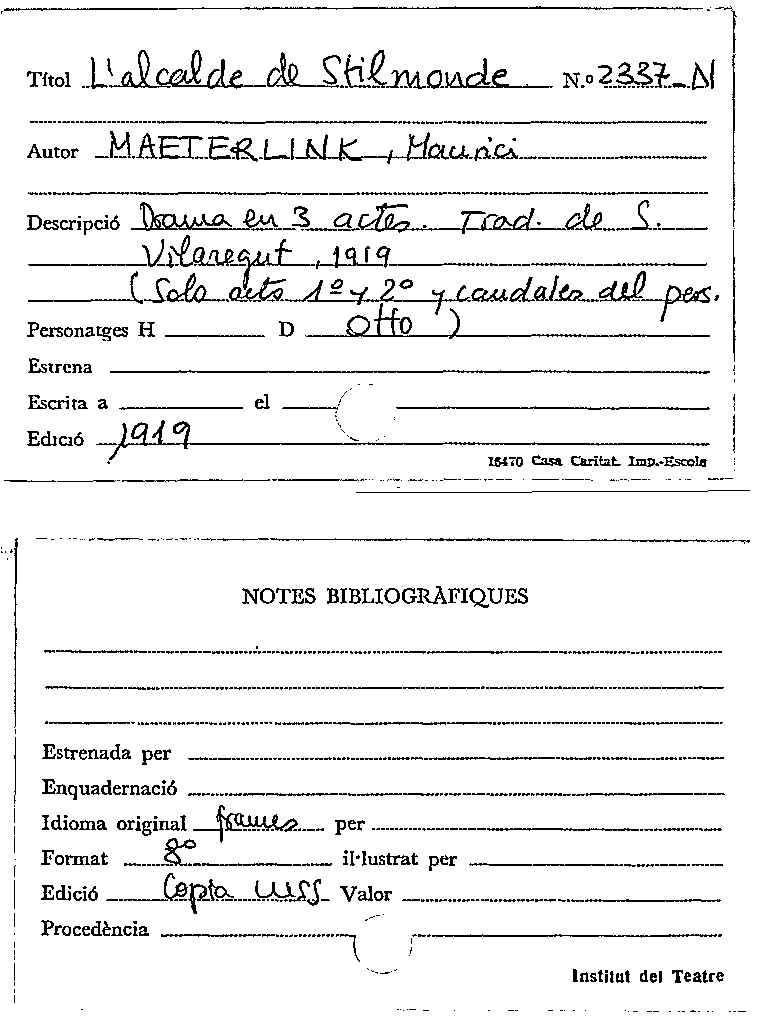 Títol L'alcalde de Stilmonde N.º 2337-N
Autor MAETERLINK, Maurici
Descripció Drama en 3 actes. Trad. de S.
Vilaregut, 1919
(Solo acto 1º y 2º y caudales del pers.
Personatges H D Otto )
Estrena
Escrita a el
Edició 1919
16470 Casa Caritat. Imp.-Escola
NOTES BIBLIOGRÀFIQUES
Estrenada per
Enquadernació
Idioma original frances per
Format 8º il·lustrat per
Edició Copia mss Valor
Procedència
Institut del Teatre